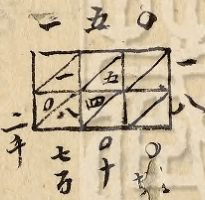 一 五 〇
一 五 一
〇 八 四 八
二千
七百 〇十 〇